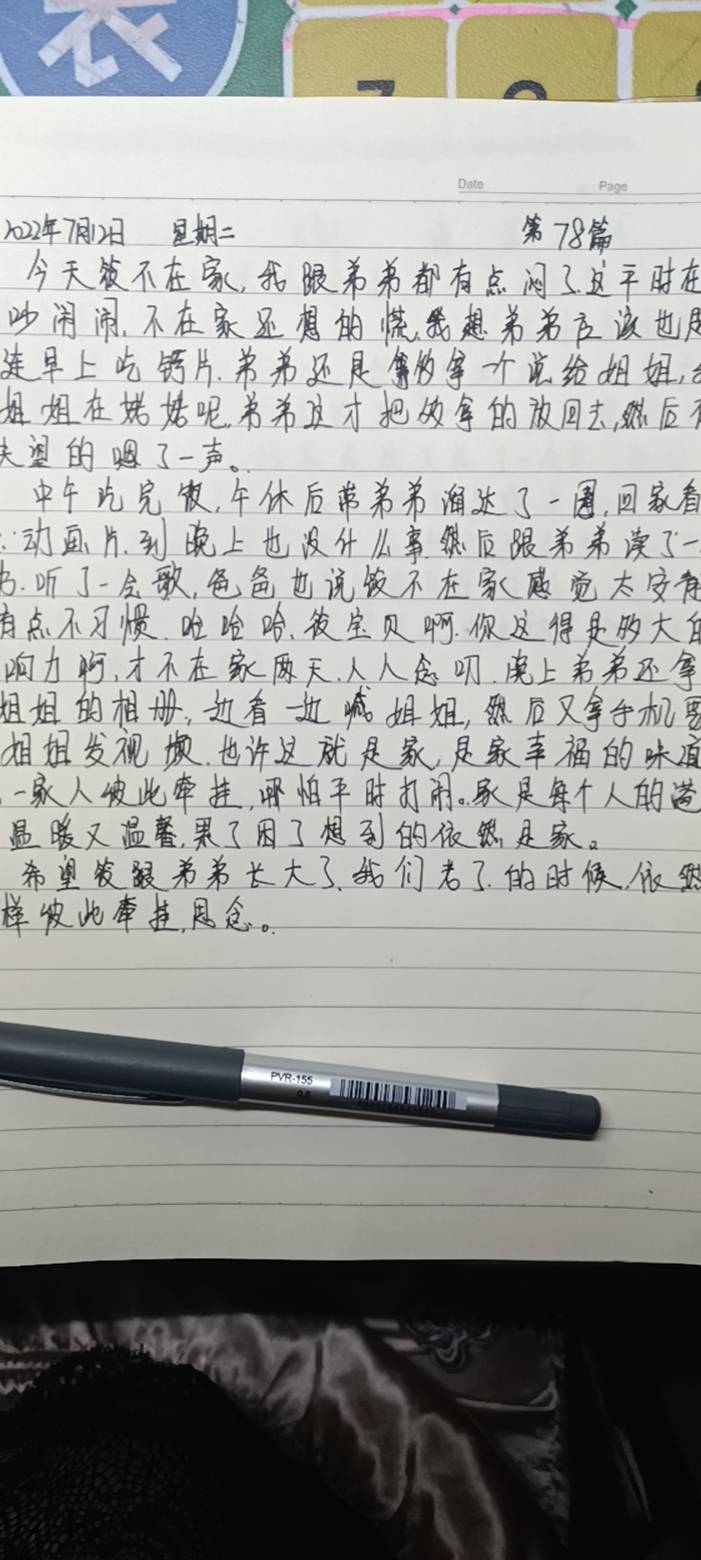 Date Page
2022年7月12日 星期二 第78篇
今天筱不在家,我跟弟弟都有点闷了.这平时在
吵闹闹,不在家还想的慌.我想弟弟应该也是
连早上吃钙片.弟弟还是多拿一个说给姐姐,
姐姐在姥姥呢,弟弟这才把多拿的放回去,然后有
失望的嗯了一声。
中午吃完饭,午休后带弟弟溜达了一圈,回家看
动画片.到晚上也没什么事.然后跟弟弟读了一
书.听了一会歌,爸爸也说筱不在家感觉太安静
有点不习惯.哈哈哈,筱宝贝啊.你这得是多大的
响力啊,才不在家两天,人人念叨.晚上弟弟还拿
姐姐的相册,边看一边喊姐姐,然后又拿手机要
姐姐发视频.也许这就是家,是家幸福的味道
一家人彼此牵挂,哪怕平时打闹。家是每个人的港
温暖又温馨,累了困了想到的依然是家。
希望筱跟弟弟长大了、我们老了.的时候.依然
样彼此牵挂,思念。
PVR-155
0.5